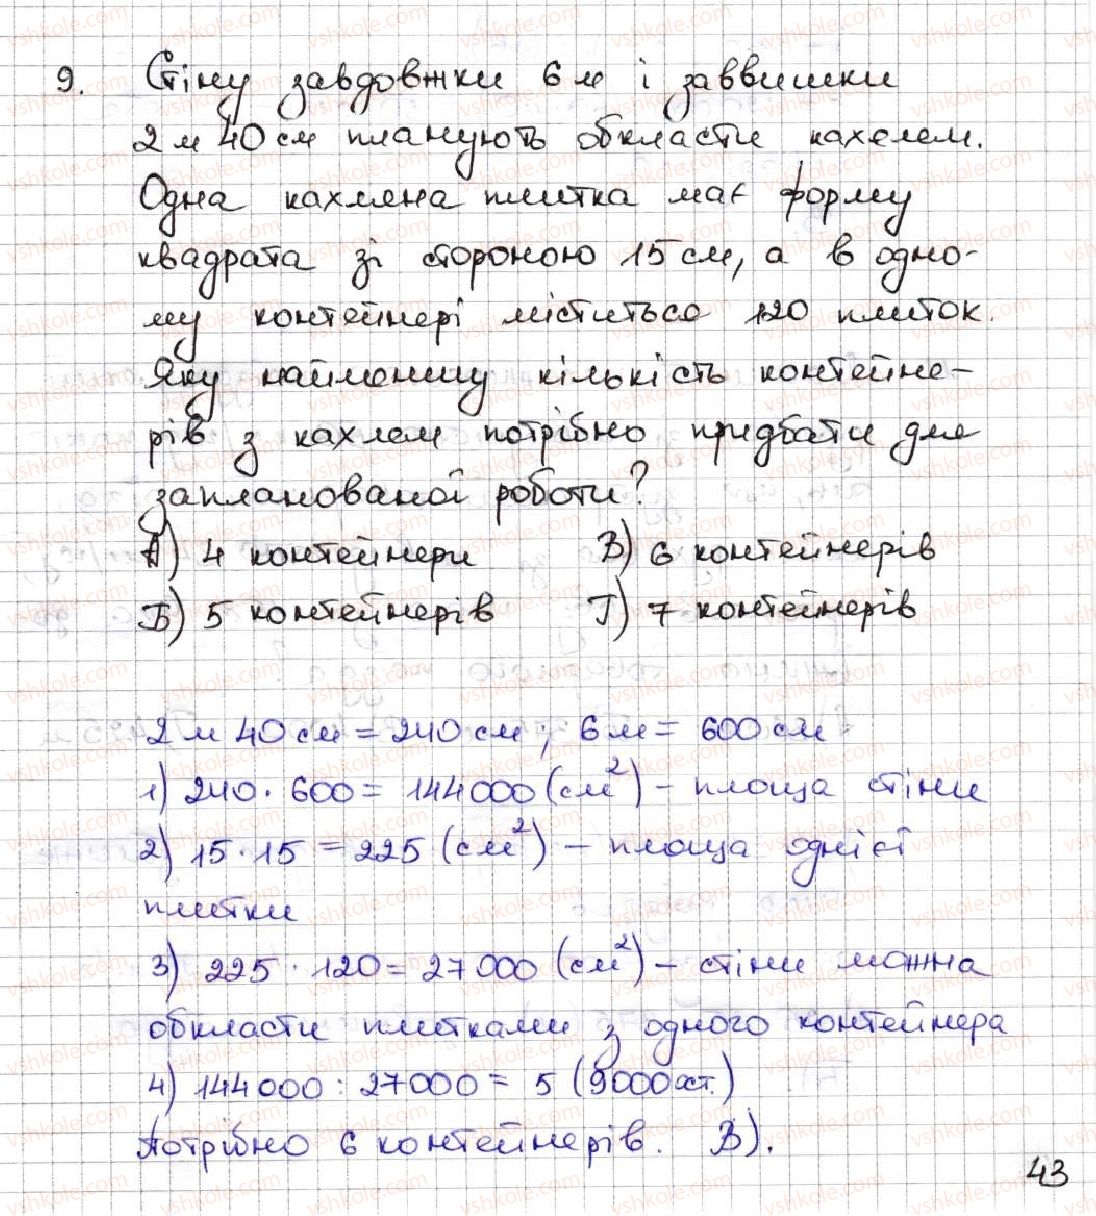 9. Стіну завдовжки 6 м і заввишки
2 м 40 см планують обкласти кахелем.
Одна кахляна плитка має форму
квадрата зі стороною 15 см, а в одно-
му контейнері міститься 120 плиток.
Яку найменшу кількість контейне-
рів з кахлем потрібно придбати для
запланованої роботи?
А) 4 контейнери В) 6 контейнерів
Б) 5 контейнерів Г) 7 контейнерів
2 м 40 см = 240 см; 6 м = 600 см
1) 240 · 600 = 144000 (см²) – площа стіни
2) 15 · 15 = 225 (см²) – площа однієї
плитки
3) 225 · 120 = 27000 (см²) – стіни можна
обкласти плитками з одного контейнера
4) 144000 : 27000 = 5 (9000 ост.)
Потрібно 6 контейнерів. В).
43